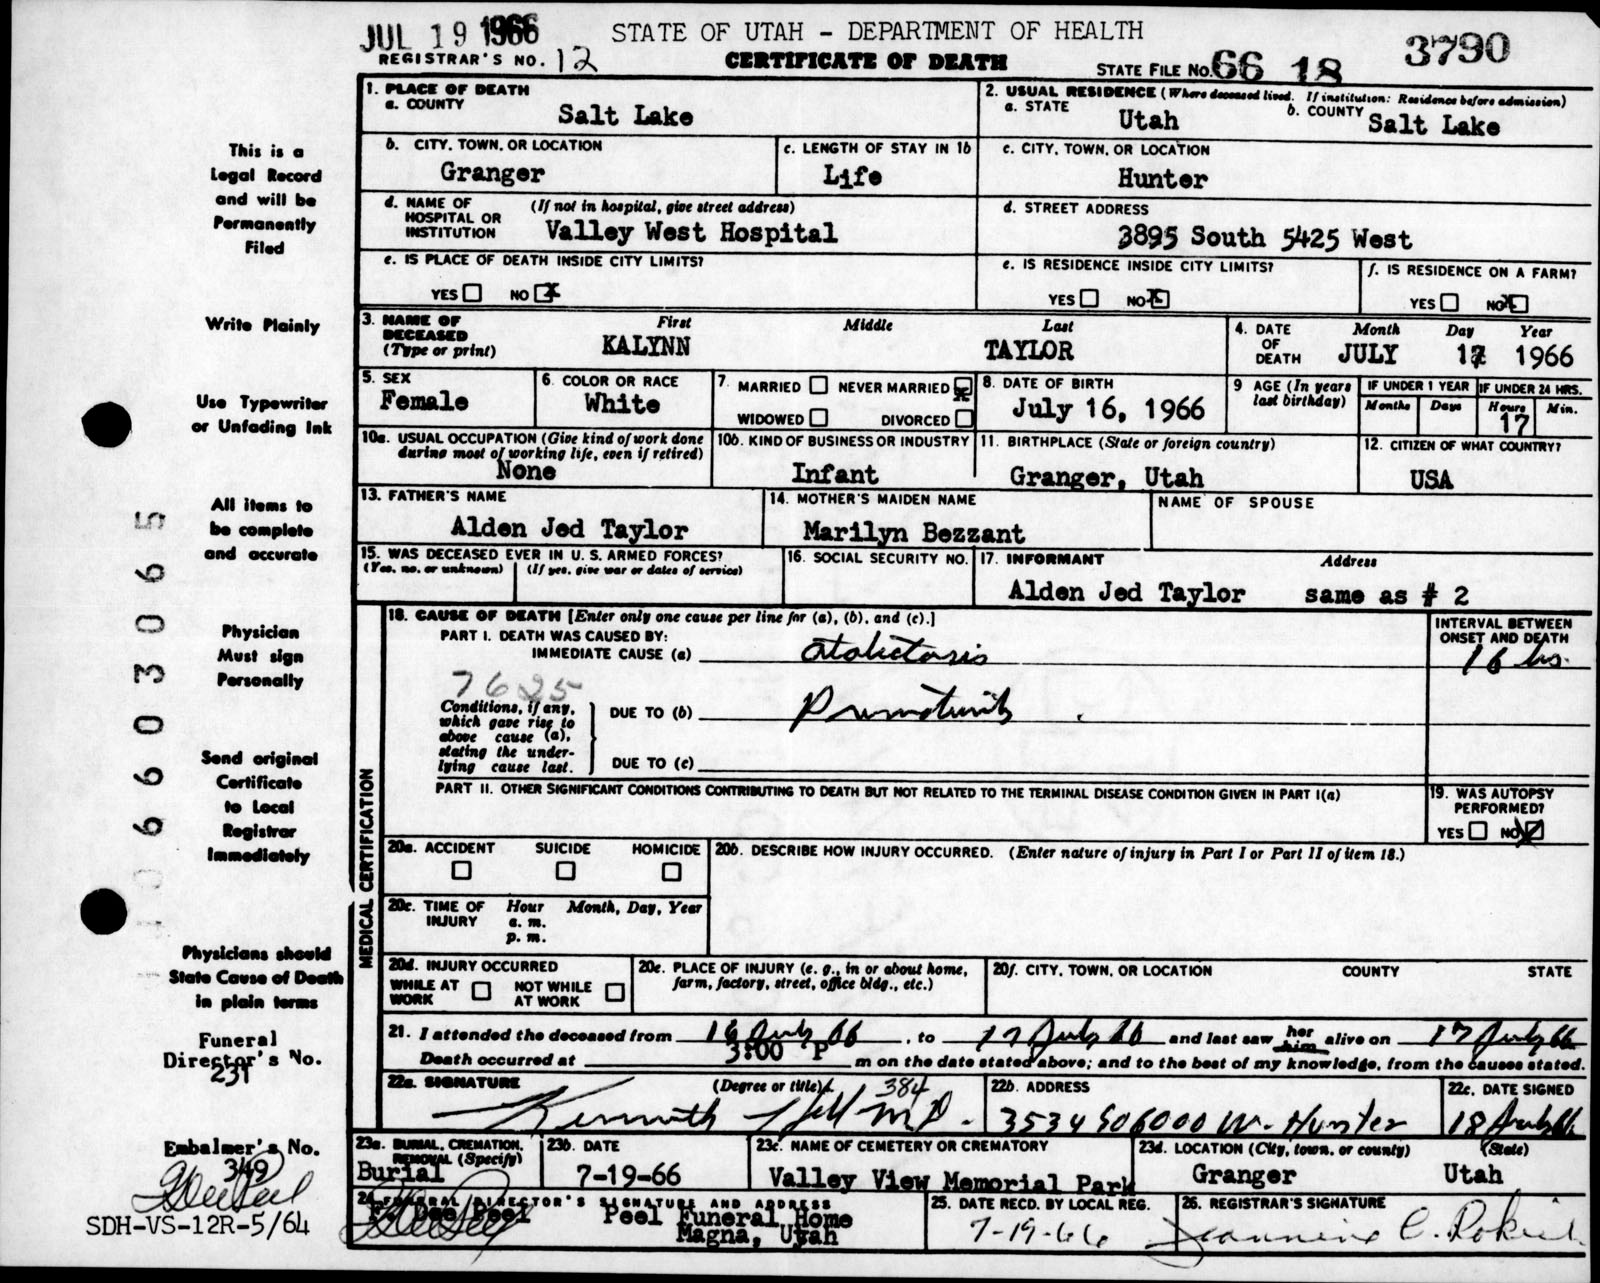 JUL 19 1966
STATE OF UTAH - DEPARTMENT OF HEALTH
REGISTRAR'S NO. 12
CERTIFICATE OF DEATH
STATE FILE NO. 66 18 3790
This is a
Legal Record
and will be
Permanently
Filed
Write Plainly
Use Typewriter
or Unfading Ink
All items to
be complete
and accurate
Physician
Must sign
Personally
Send original
Certificate
to Local
Registrar
Immediately
Physicians should
State Cause of Death
in plain terms
Funeral
Director's No.
231
Embalmer's No.
349
SDH-VS-12R-5/64
1. PLACE OF DEATH
a. COUNTY Salt Lake
2. USUAL RESIDENCE (Where deceased lived. If institution: Residence before admission)
a. STATE Utah b. COUNTY Salt Lake
b. CITY, TOWN, OR LOCATION Granger
c. LENGTH OF STAY IN 1b Life
c. CITY, TOWN, OR LOCATION Hunter
d. NAME OF HOSPITAL OR INSTITUTION (If not in hospital, give street address) Valley West Hospital
d. STREET ADDRESS 3895 South 5425 West
e. IS PLACE OF DEATH INSIDE CITY LIMITS?
YES NO X
e. IS RESIDENCE INSIDE CITY LIMITS?
YES NO X
f. IS RESIDENCE ON A FARM?
YES NO X
3. NAME OF DECEASED (Type or print) First Middle Last
KALYNN TAYLOR
4. DATE OF DEATH Month Day Year
JULY 17 1966
5. SEX Female
6. COLOR OR RACE White
7. MARRIED NEVER MARRIED X
WIDOWED DIVORCED
8. DATE OF BIRTH July 16, 1966
9 AGE (In years last birthday)
IF UNDER 1 YEAR Months Days
IF UNDER 24 HRS. Hours Min.
17
10a. USUAL OCCUPATION (Give kind of work done during most of working life, even if retired) None
10b. KIND OF BUSINESS OR INDUSTRY Infant
11. BIRTHPLACE (State or foreign country) Granger, Utah
12. CITIZEN OF WHAT COUNTRY? USA
13. FATHER'S NAME Alden Jed Taylor
14. MOTHER'S MAIDEN NAME Marilyn Bezzant
NAME OF SPOUSE
15. WAS DECEASED EVER IN U. S. ARMED FORCES?
(Yes, no, or unknown) (If yes, give war or dates of service)
16. SOCIAL SECURITY NO.
17. INFORMANT Address
Alden Jed Taylor same as # 2
MEDICAL CERTIFICATION
18. CAUSE OF DEATH [Enter only one cause per line for (a), (b), and (c).]
INTERVAL BETWEEN ONSET AND DEATH
PART I. DEATH WAS CAUSED BY:
IMMEDIATE CAUSE (a) Atelectasis 16 hrs.
7625
Conditions, if any, which gave rise to above cause (a), stating the underlying cause last.
DUE TO (b) Prematurity
DUE TO (c)
PART II. OTHER SIGNIFICANT CONDITIONS CONTRIBUTING TO DEATH BUT NOT RELATED TO THE TERMINAL DISEASE CONDITION GIVEN IN PART I(a)
19. WAS AUTOPSY PERFORMED?
YES NO X
20a. ACCIDENT SUICIDE HOMICIDE
20b. DESCRIBE HOW INJURY OCCURRED. (Enter nature of injury in Part I or Part II of item 18.)
20c. TIME OF INJURY Hour Month, Day, Year
a. m.
p. m.
20d. INJURY OCCURRED
WHILE AT WORK NOT WHILE AT WORK
20e. PLACE OF INJURY (e. g., in or about home, farm, factory, street, office bldg., etc.)
20f. CITY, TOWN, OR LOCATION COUNTY STATE
21. I attended the deceased from 16 July 66, to 17 July 66 and last saw her him alive on 17 July 66
Death occurred at 3:00 P m on the date stated above; and to the best of my knowledge, from the causes stated.
22a. SIGNATURE (Degree or title) 384
Kenneth Hill M D.
22b. ADDRESS 3534 So 6000 W. Hunter
22c. DATE SIGNED 18 July 66
23a. BURIAL, CREMATION, REMOVAL (Specify) Burial
23b. DATE 7-19-66
23c. NAME OF CEMETERY OR CREMATORY Valley View Memorial Park
23d. LOCATION (City, town, or county) (State)
Granger Utah
24. FUNERAL DIRECTOR'S SIGNATURE AND ADDRESS
Dee Peel Peel Funeral Home
Magna, Utah
25. DATE RECD. BY LOCAL REG. 7-19-66
26. REGISTRAR'S SIGNATURE